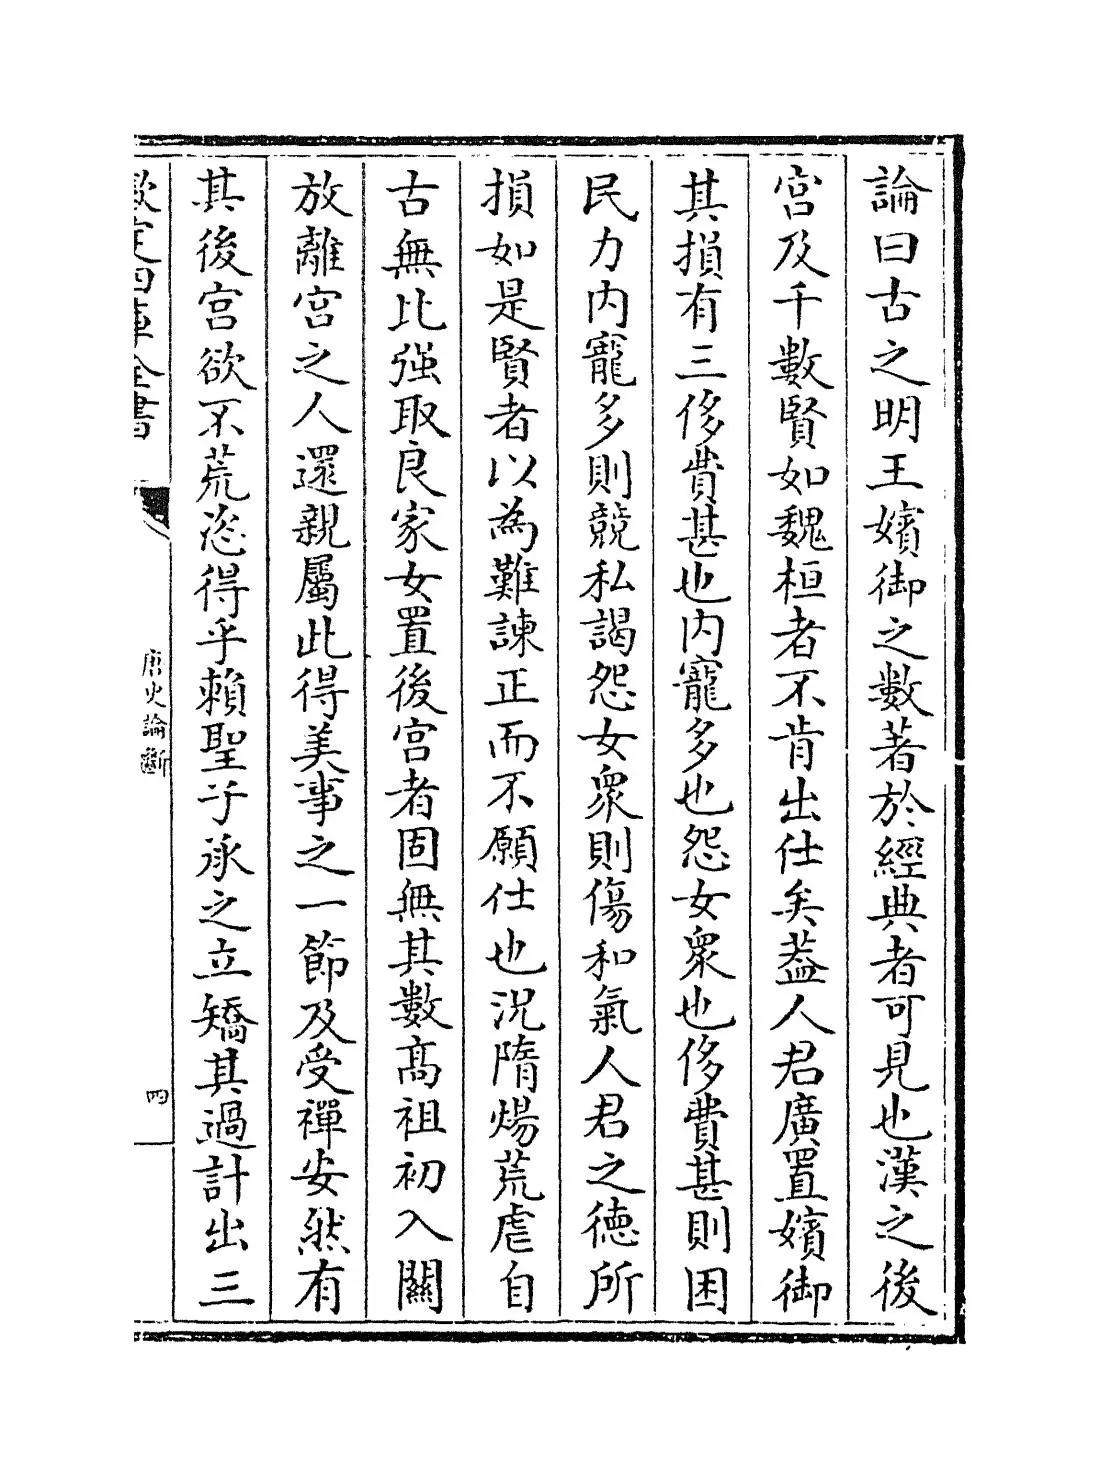 論曰古之明王嬪御之數著於經典者可見也漢之後
宫及千數賢如魏桓者不肯出仕矣葢人君廣置嬪御
其損有三侈費甚也内寵多也怨女衆也侈費甚則困
民力内寵多則競私謁怨女衆則傷和氣人君之徳所
損如是賢者以為難諫正而不願仕也況隋煬荒虐自
古無比强取良家女置後宫者固無其數髙祖初入關
放離宫之人還親屬此得美事之一節及受禪安然有
其後宫欲不荒恣得乎賴聖子承之立矯其過計出三
欽定四庫全書
唐史論斷
四